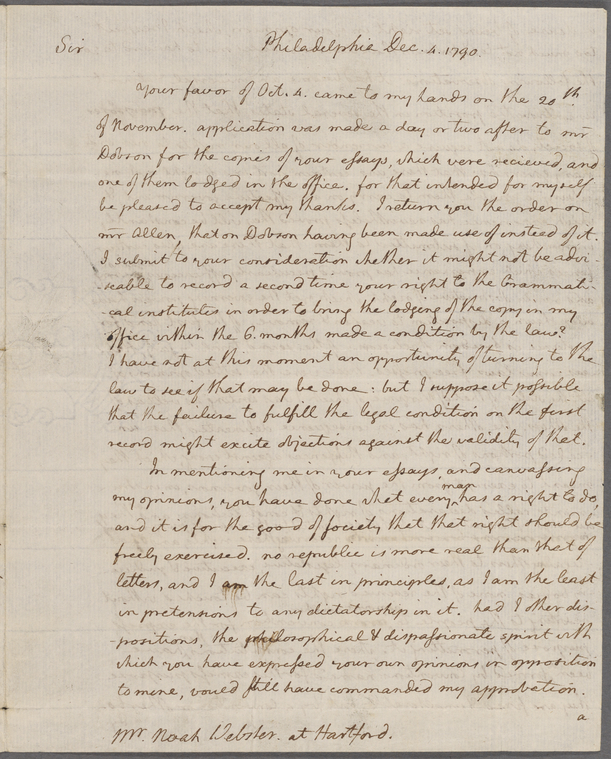 Sir Philadelphia Dec. 4. 1790.
Your favor of Oct. 4. came to my hands on the 20th.
of November. application was made a day or two after to mr
Dobson for the copies of your essays, which were recieved, and
one of them lodged in the office. for that intended for myself
be pleased to accept my thanks. I return you the order on
mr Allen, that on Dobson having been made use of instead of it.
I submit to your consideration whether it might not be advi-
-seable to record a second time your right to the Grammati-
-cal institutes in order to bring the lodging of the copy in my
office within the 6. months made a condition by the law?
I have not at this moment an opportunity of turning to the
law to see if that may be done: but I suppose it possible
that the failure to fulfill the legal condition on the first
record might excite objections against the validity of that.
In mentioning me in your essays, and canvassing
my opinions, you have done what every man has a right to do,
and it is for the good of society that that right should be
freely exercised. no republic is more real than that of
letters, and I am the last in principles, as I am the least
in pretensions to any dictatorship in it. had I other dis-
-positions, the philosophical & dispassionate spirit with
which you have expressed your own opinions in opposition
to mine, would still have commanded my approbation.
a
Mr. Noah Webster. at Hartford.